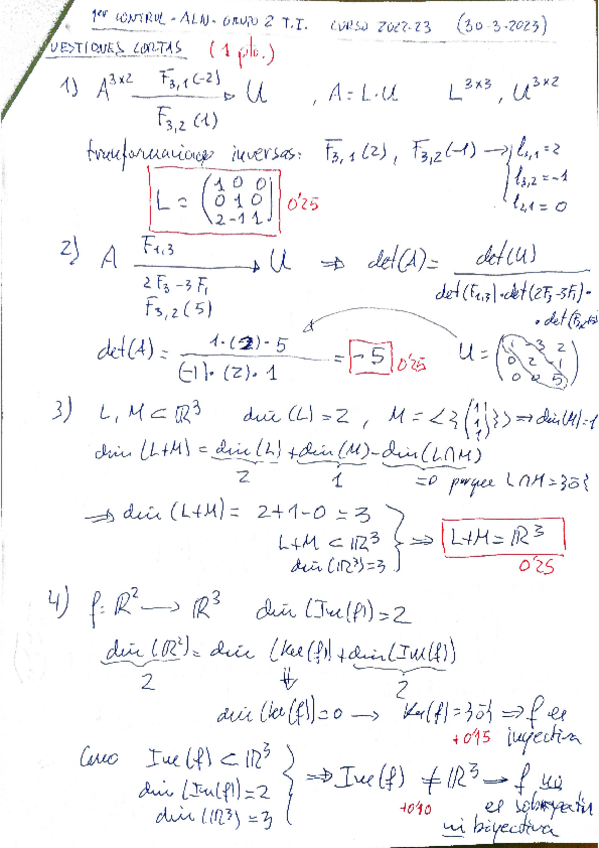 1er CONTROL - ALN - GRUPO 2 T.I. CURSO 2022-23 (30-3-2023)
CUESTIONES CORTAS (1 pto.)
1) A^{3×2} F_{3,1}(-2) → U , A = L·U L^{3×3}, U^{3×2}
F_{3,2}(1)
transformaciones inversas: F_{3,1}(2), F_{3,2}(-1) → l_{3,1} = 2
l_{3,2} = -1
l_{2,1} = 0
L = (1 0 0
0 1 0
2 -1 1) 0'25
2) A F_{1,3} → U ⇒ det(A) = det(U)
2F_3 - 3F_1 det(F_{1,3})·det(2F_3-3F_1)·
F_{3,2}(5) ·det(F_{3,2}(5))
det(A) = 1·(2)·5 / (-1)·(2)·1 = -5 0'25 U = (1 -3 2
0 2 -1
0 0 5)
3) L, M ⊂ ℝ³ dim(L) = 2, M = <{(1
1
1)}> ⇒ dim(M) = 1
dim(L+M) = dim(L) + dim(M) - dim(L∩M)
2 1 =0 porque L∩M = {ō}
⇒ dim(L+M) = 2+1-0 = 3
L+M ⊂ ℝ³ ⇒ L+M = ℝ³
dim(ℝ³) = 3 0'25
4) f: ℝ² → ℝ³ dim(Im(f)) = 2
dim(ℝ²) = dim(Ker(f)) + dim(Im(f))
2 ⇓ 2
dim(Ker(f)) = 0 → Ker(f) = {ō} ⇒ f es
+0'15 inyectiva
Como Im(f) ⊂ ℝ³
dim(Im(f)) = 2 ⇒ Im(f) ≠ ℝ³ → f no
dim(ℝ³) = 3 +0'10 es sobreyectiva
ni biyectiva